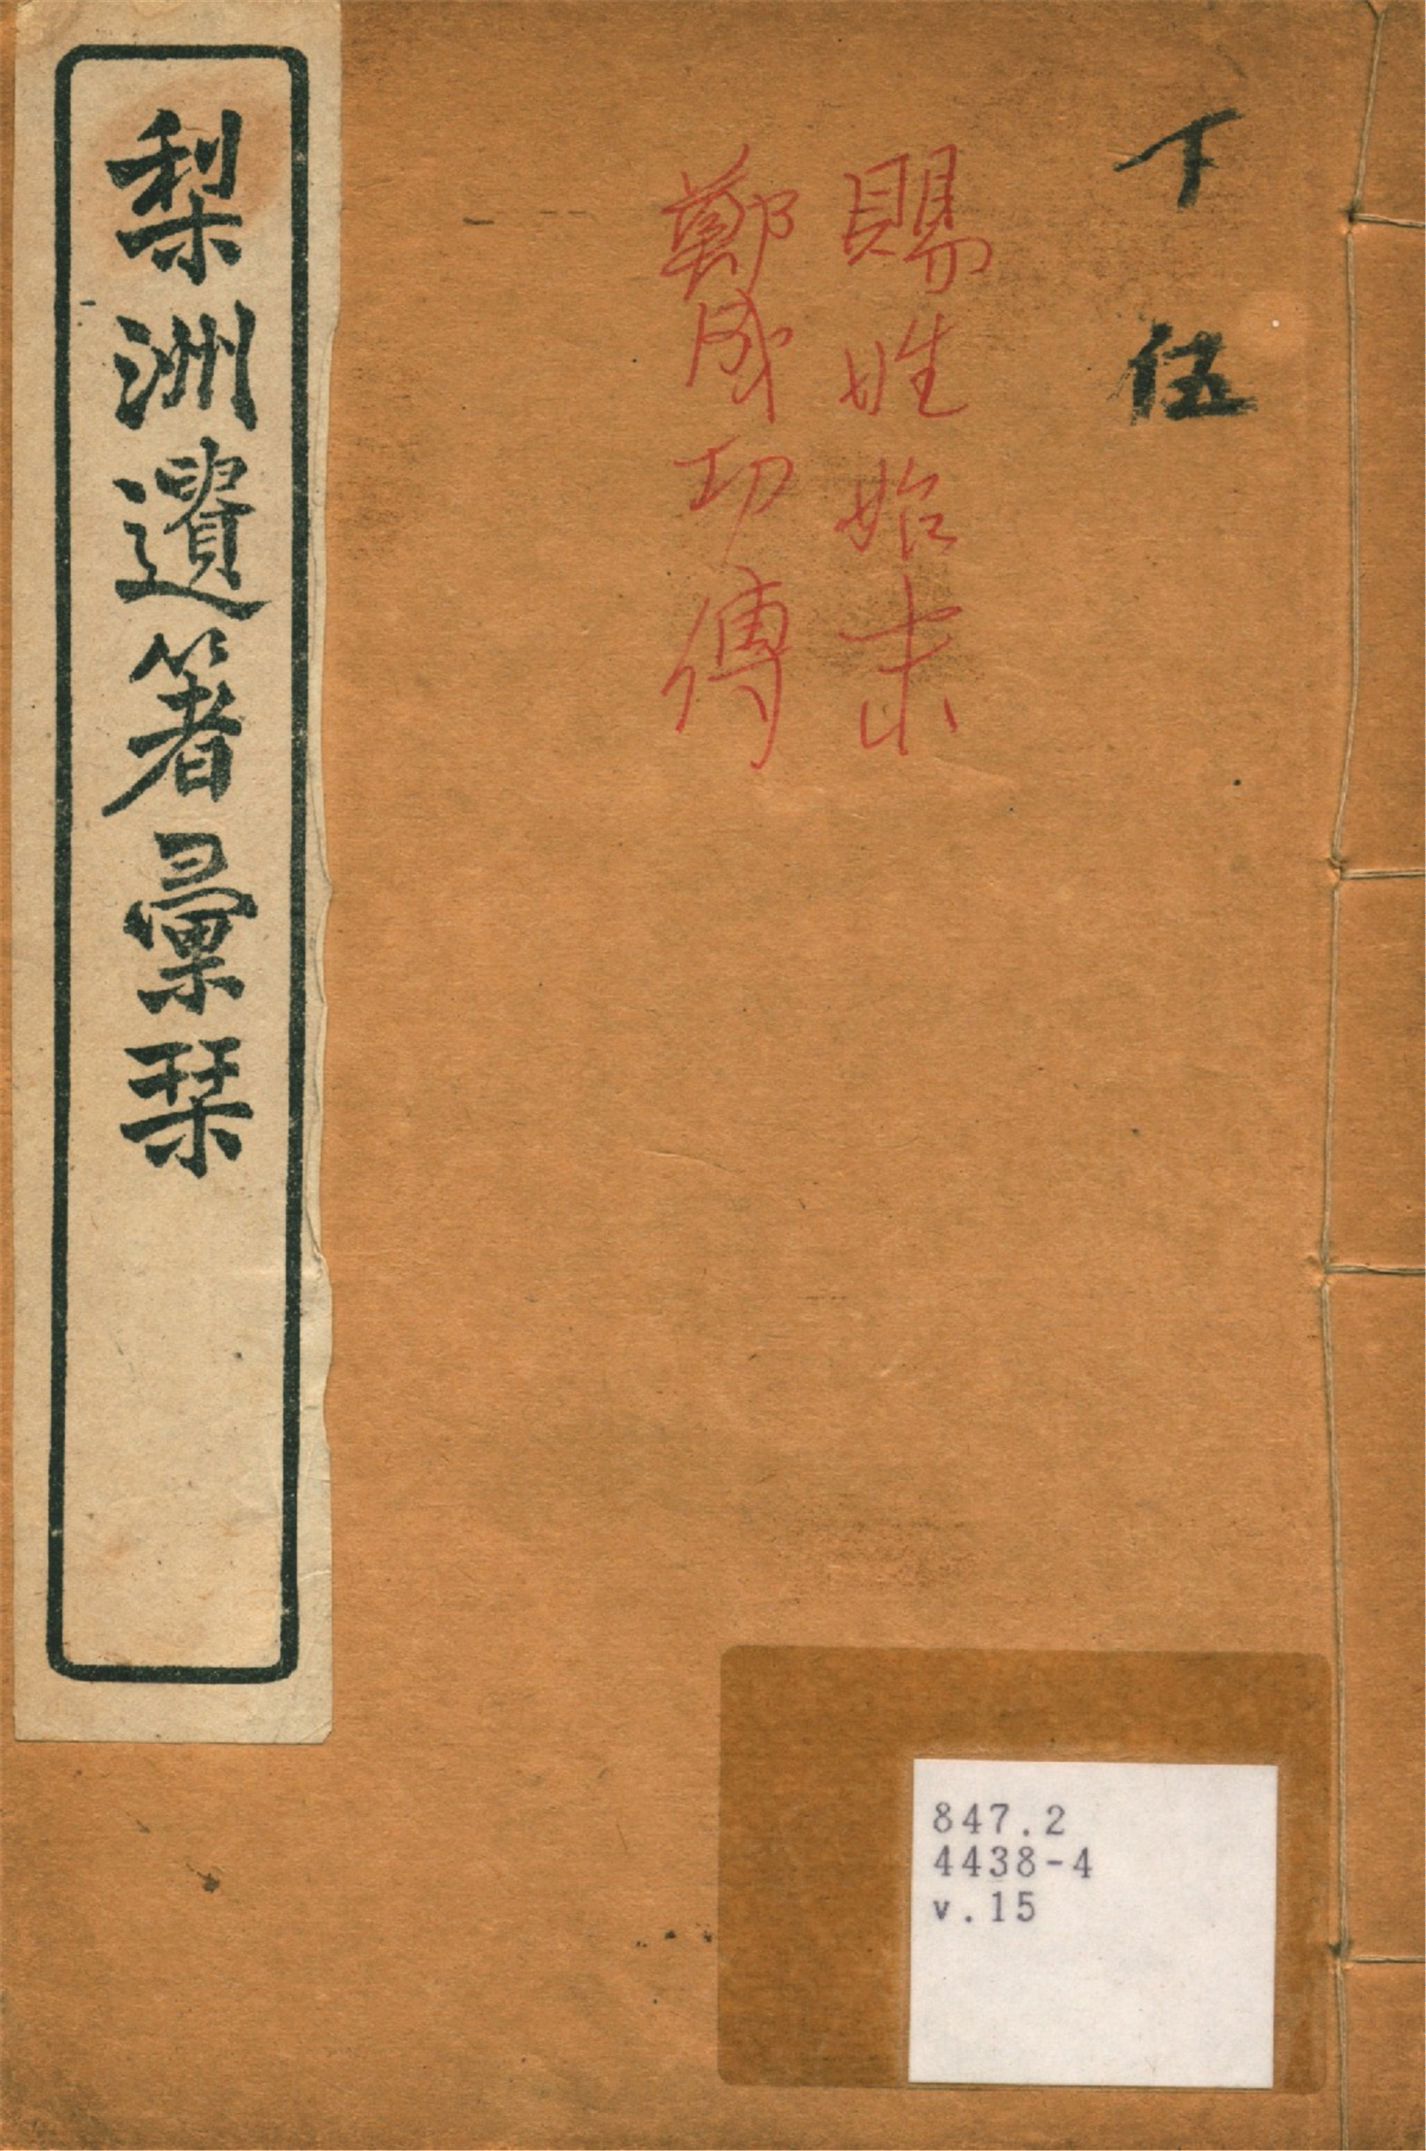 丅伍
賜姓始末
鄭成功傳
梨洲遺著彙栞
847.2
4438-4
v.15